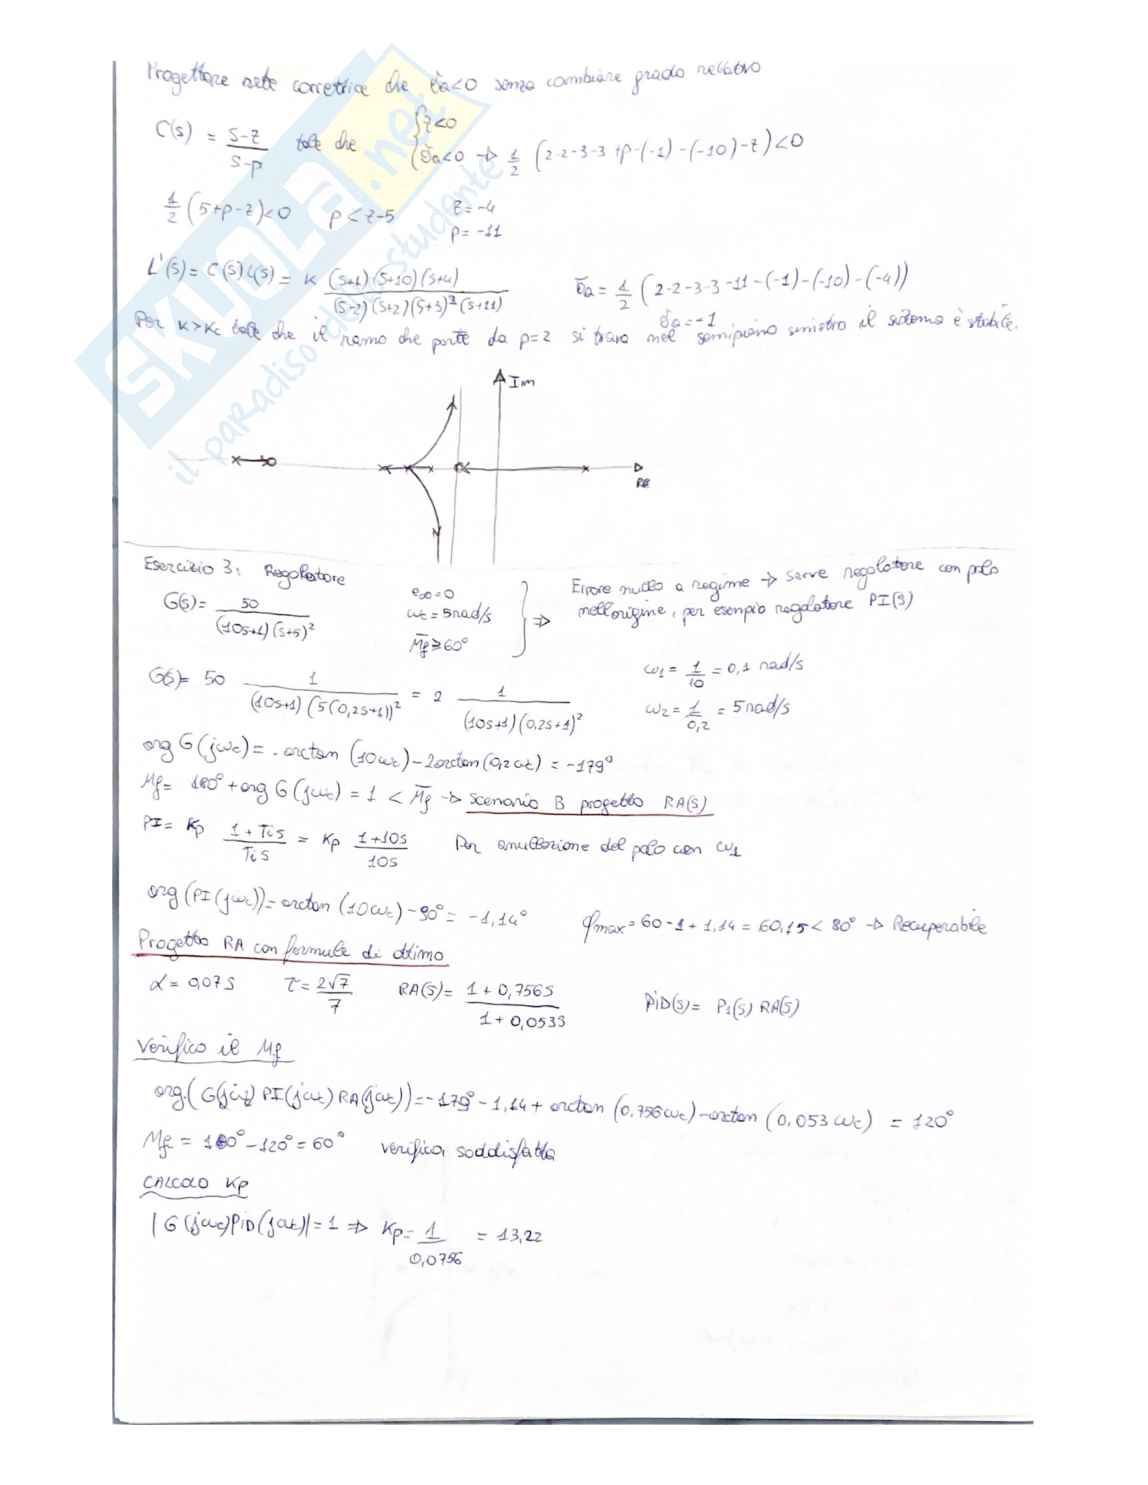 Progettare rete correttrice che σa<0 senza cambiare grado relativo
C(s) = (s-z)/(s-p) tale che { z<0
{ σa<0 → 1/2 (2-2-3-3+p-(-1)-(-10)-z)<0
1/2 (5+p-z)<0 p<z-5 z=-4
p=-11
L'(s)= C(s)L(s)= K (s+1)(s+10)(s+4) / (s-2)(s+2)(s+3)²(s+11) σa= 1/2 (2-2-3-3-11-(-1)-(-10)-(-4))
σa=-1
Per K>Kc tale che il ramo che parte da p=2 si trova nel semipiano sinistro il sistema è stabile.
Im
Re
Esercizio 3: Regolatore
G(s)= 50 / (10s+1)(s+5)²
e∞=0
ωc=5rad/s
Mf≥60°
⇒ Errore nullo a regime → serve regolatore con polo
nell'origine, per esempio regolatore PI(s)
G(s)= 50 1/((10s+1)(5(0,2s+1))²) = 2 1/((10s+1)(0,2s+1)²)
ω1= 1/10 = 0,1 rad/s
ω2= 1/0,2 = 5rad/s
arg G(jωc)= -arctan(10ωc)-2arctan(0,2ωc) = -179°
Mf= 180°+arg G(jωc)= 1 < Mf → Scenario B progetto RA(s)
PI= Kp (1+Tis)/(Tis) = Kp (1+10s)/(10s) Per annullazione del polo con ω1
arg(PI(jωc))=arctan(10ωc)-90°= -1,14° φmax= 60-1+1,14= 60,15< 80° → Recuperabile
Progetto RA con formule di ottimo
α= 0,07s τ= 2√7/7 RA(s)= (1+0,756s)/(1+0,053s) PiD(s)= PI(s) RA(s)
Verifico il Mf
arg(G(jωc) PI(jωc) RA(jωc))= -179°-1,14+arctan(0,756ωc)-arctan(0,053ωc) = 120°
Mf = 180°-120°=60° verifica soddisfatta
CALCOLO Kp
|G(jωc)PiD(jωc)|=1 ⇒ Kp= 1/0,0756 = 13,22
SKUOLA.net
il paradiso dello studente